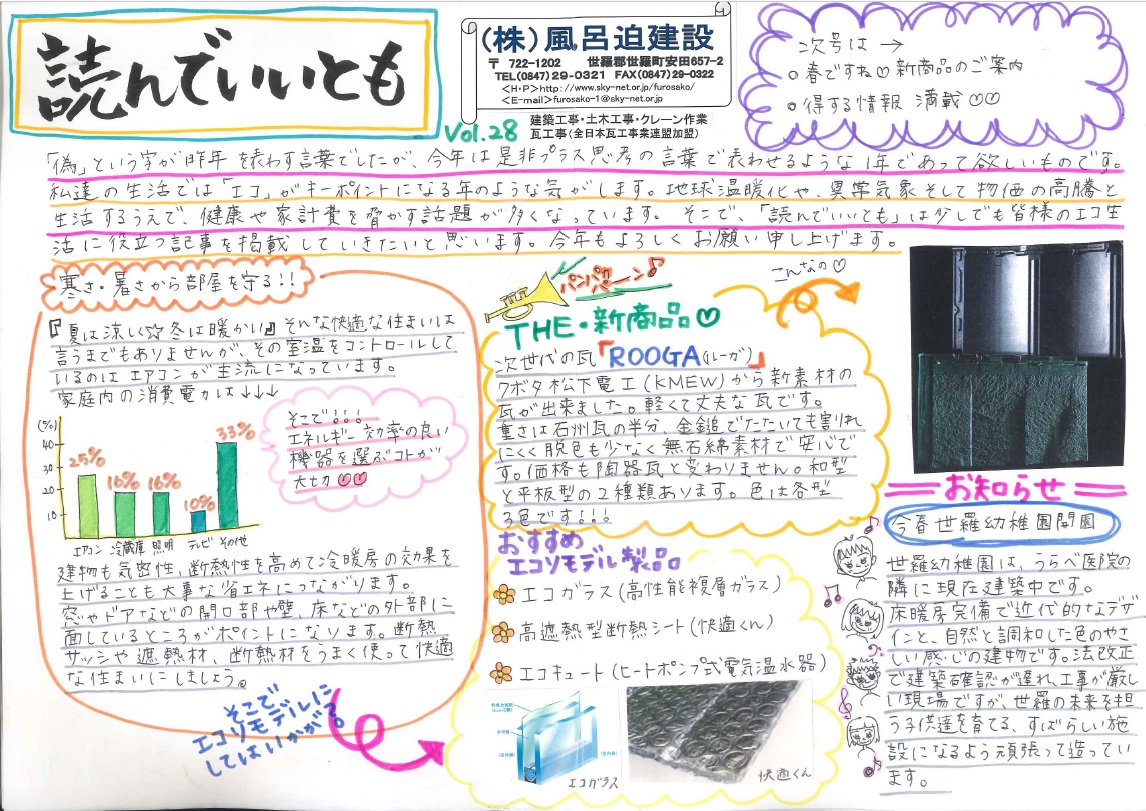 読んでいいとも
(株)風呂迫建設
〒 722-1202 世羅郡世羅町安田657-2
TEL(0847)29-0321 FAX(0847)29-0322
<H・P>http://www.sky-net.or.jp/furosako/
<E-mail>furosako-1@sky-net.or.jp
建築工事・土木工事・クレーン作業
瓦工事(全日本瓦工事業連盟加盟)
Vol.28
次号は →
○春ですね♡新商品のご案内
○得する情報 満載♡♡
「偽」という字が昨年を表わす言葉でしたが、今年は是非プラス思考の言葉で表わせるような1年であって欲しいものです。
私達の生活では「エコ」がキーポイントになる年のような気がします。地球温暖化や、異常気象そして物価の高騰と
生活するうえで、健康や家計費を脅かす話題が多くなっています。そこで、「読んでいいとも」は少しでも皆様のエコ生
活に役立つ記事を掲載していきたいと思います。今年もよろしくお願い申し上げます。
寒さ・暑さから部屋を守る!!
『夏は涼しく☆冬は暖かい』そんな快適な住まいは
言うまでもありませんが、その室温をコントロールして
いるのはエアコンが主流になっています。
家庭内の消費電力は↓↓↓
(%)
40
30
20
10
25%
16%
16%
10%
33%
エアコン 冷蔵庫 照明 テレビ その他
そこで!!!
エネルギー効率の良い
機器を選ぶコトが
大切♡♡
建物も気密性、断熱性を高めて冷暖房の効果を
上げることも大事な省エネにつながります。
窓やドアなどの開口部や壁、床などの外部に
面しているところがポイントになります。断熱
サッシや遮熱材、断熱材をうまく使って快適
な住まいにしましょう。
そこで
エコリモデルに
してはいかが?
パンパカパーン♪
こんなの♡
THE・新商品♡
次世代の瓦「ROOGA(ルーガ)」
クボタ松下電工(KMEW)から新素材の
瓦が出来ました。軽くて丈夫な瓦です。
重さは石州瓦の半分、金鎚でたたいても割れ
にくく脱色も少なく無石綿素材で安心で
す。価格も陶器瓦と変わりません。和型
と平板型の2種類あります。色は各型
3色です!!!
おすすめ
エコリモデル製品
エコガラス(高性能複層ガラス)
高遮熱型断熱シート(快適くん)
エコキュート(ヒートポンプ式電気温水器)
エコガラス
快適くん
お知らせ
今春世羅幼稚園開園
世羅幼稚園は、うらべ医院の
隣に現在建築中です。
床暖房完備で近代的なデザ
インと、自然と調和した色のやさ
しい感じの建物です。法改正
で建築確認が遅れ、工事が厳し
い現場ですが、世羅の未来を担
う子供達を育てる、すばらしい施
設になるよう頑張って造ってい
ます。